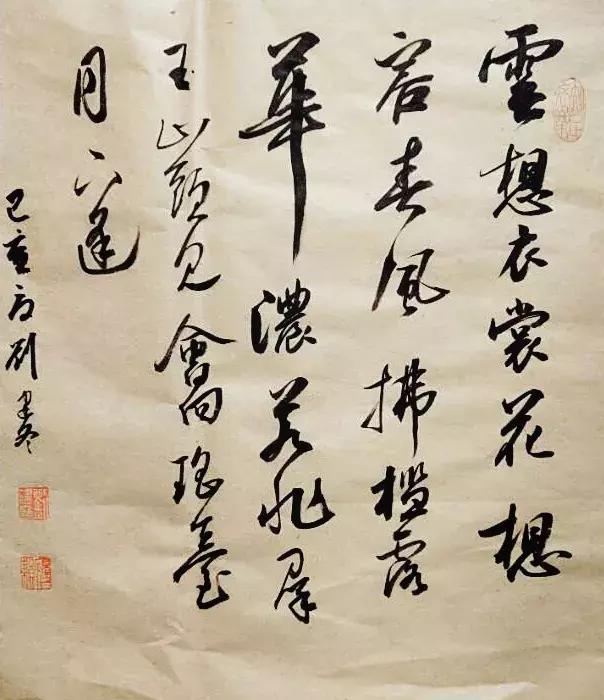 雲想衣裳花想
容春風拂槛露
華濃若非羣
玉山頭見會向瑤臺
月下逢
己亥